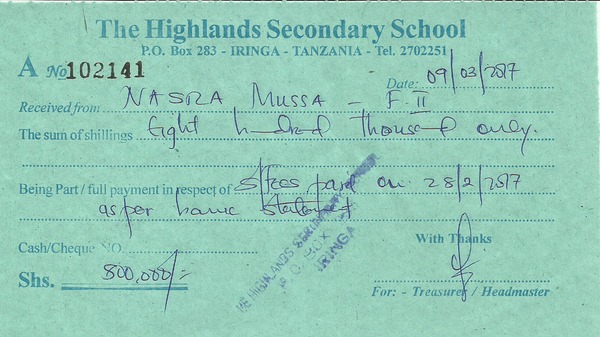 The Highlands Secondary School
P.O. Box 283 - IRINGA - TANZANIA - Tel. 2702251
A No 102141
Date: 09/03/2017
Received from NASRA MUSSA - F II
The sum of shillings eight hundred thousand only.
Being Part / full payment in respect of S/fees paid on 28/2/2017
as per bank statement
Cash/Cheque NO.
With Thanks
Shs. 800,000/=
For: - Treasurer / Headmaster
THE HIGHLANDS
P.O. BOX
IRINGA